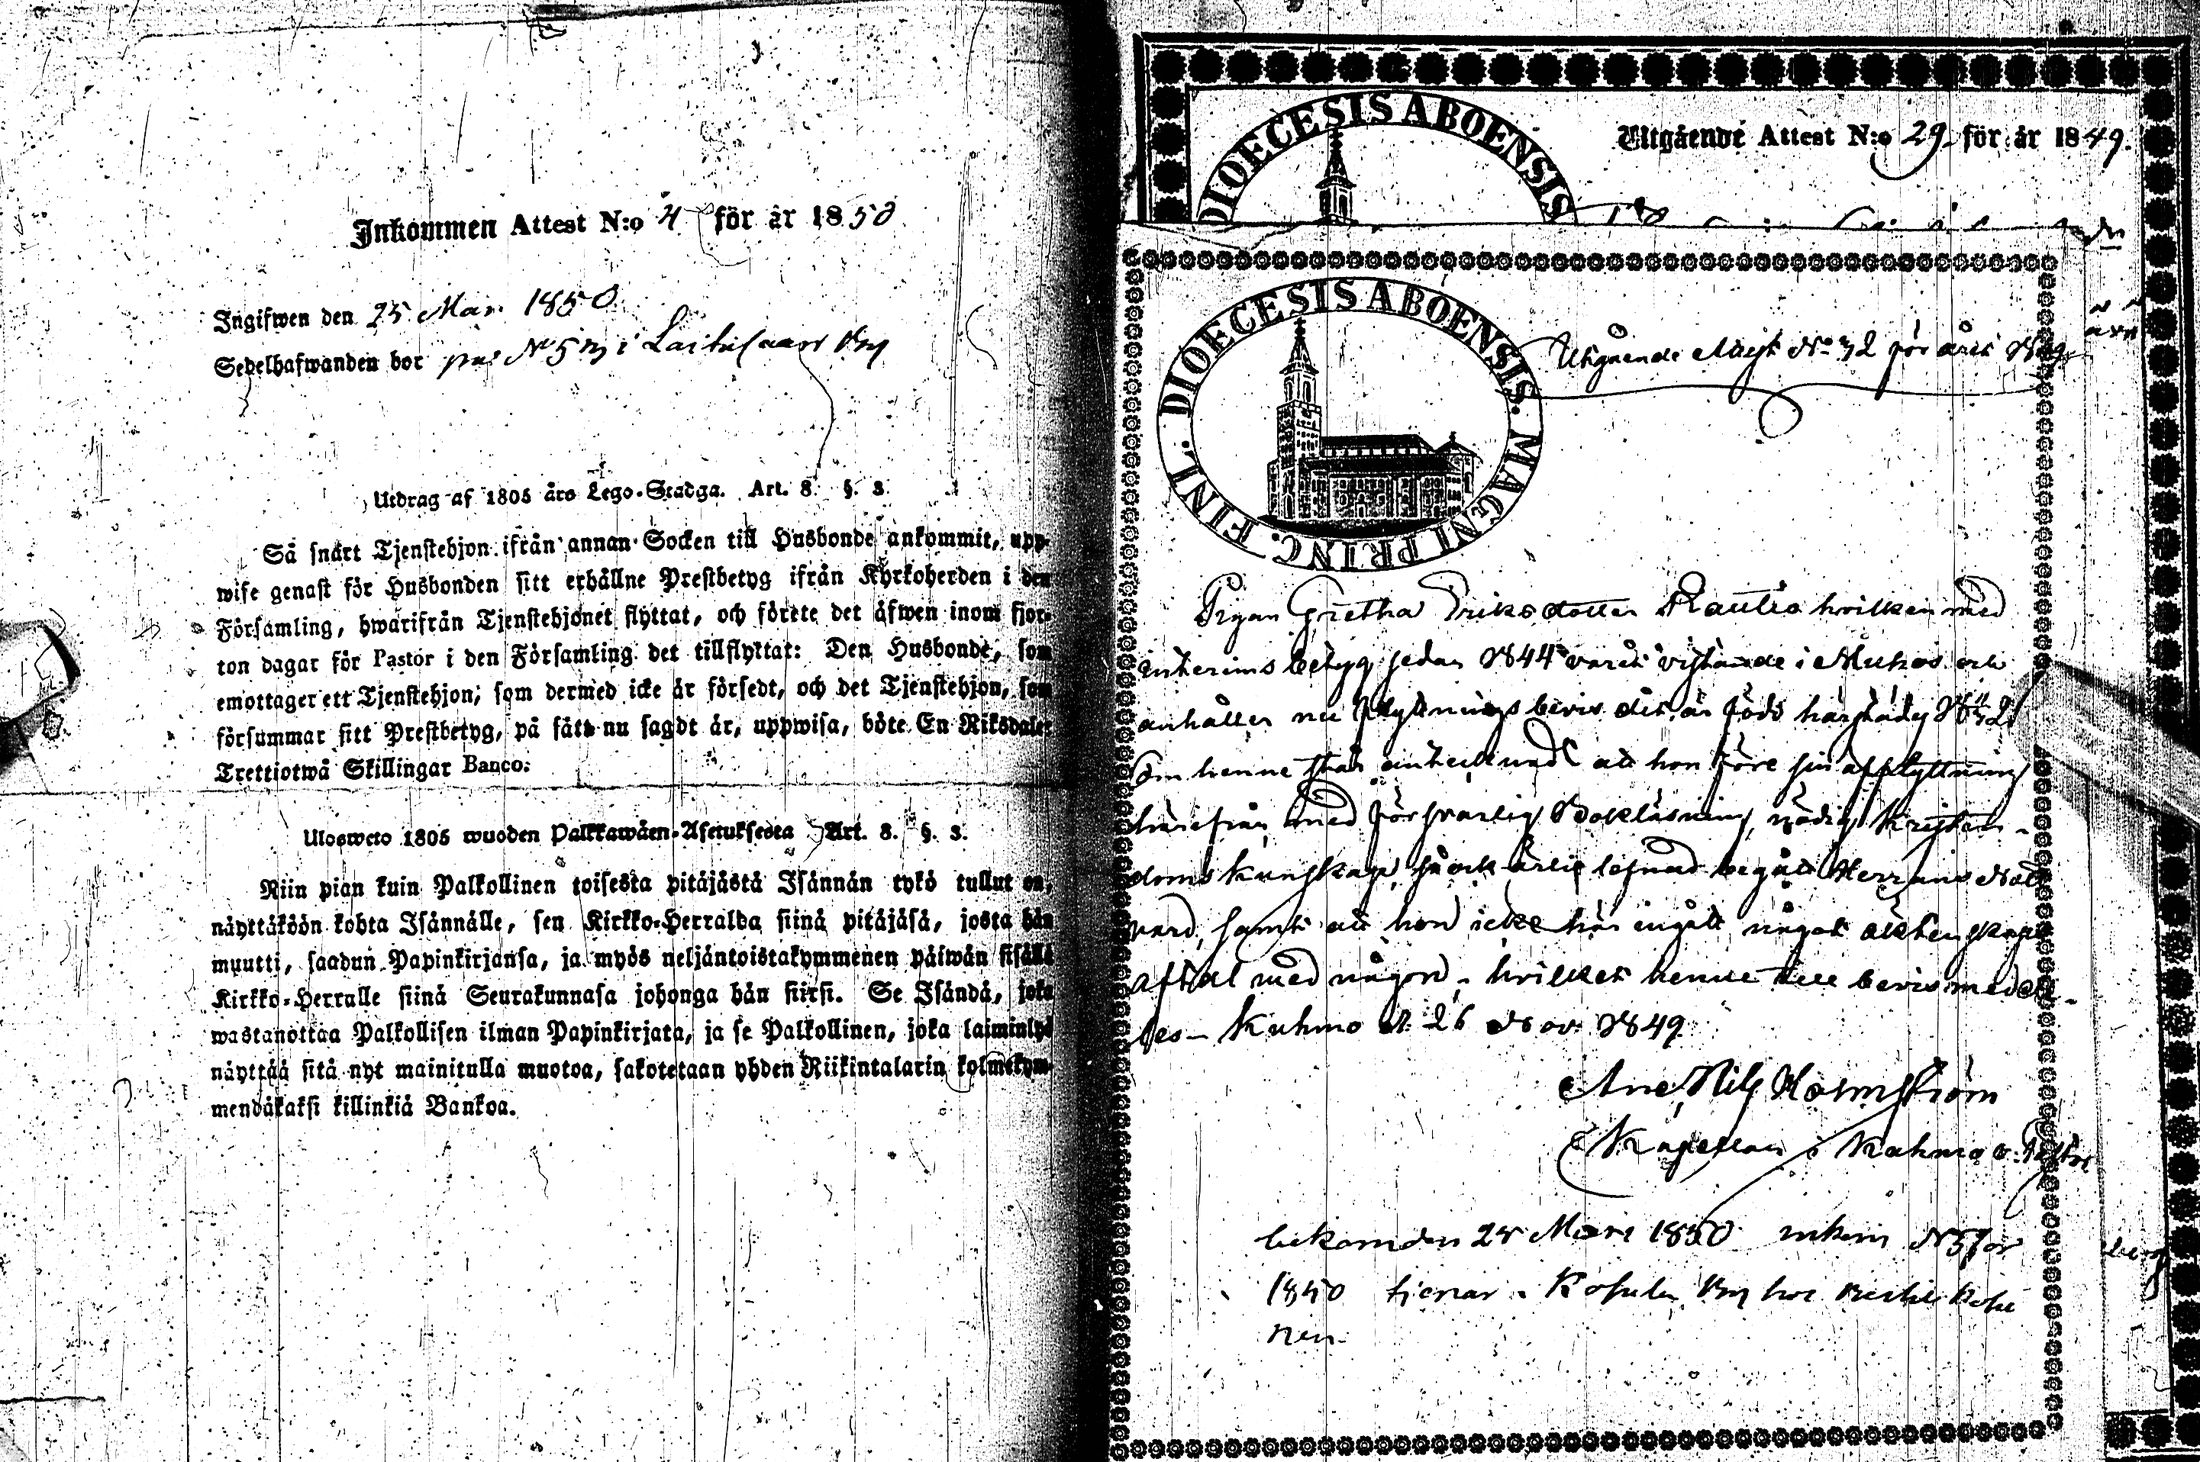 Inkommen Attest N:o 4 för år 1850
Ingifwen den 25 Mar. 1850.
Sedelhafwanden bor på N 5 i by
Utdrag af 1805 års Lego-Stadga. Art. 8. §. 3.
Så snart Tjenstehjon ifrån annan Socken till Husbonde ankommit, upp-
wise genast för Husbonden sitt erhållne Prestbetyg ifrån Kyrkoherden i den
Församling, hwarifrån Tjenstehjonet flyttat, och förete det äfwen inom fjor-
ton dagar för Pastor i den Församling det tillflyttat: Den Husbonde, som
emottager ett Tjenstehjon, som dermed icke är försedt, och det Tjenstehjon, som
försummar sitt Prestbetyg, på sätt nu sagdt är, uppwisa, böte En Riksdaler
Trettiotwå Skillingar Banco.
Ulosweto 1805 wuoden Palkkawäen-Asetuksesta Art. 8. §. 3.
Niin pian kuin Palkollinen toisesta pitäjästä Isännän tykö tullut on,
näyttäköön kohta Isännälle, sen Kirkko-Herralda siinä pitäjäsä, josta hän
muutti, saadun Papinkirjansa, ja myös neljäntoistakymmenen päiwän sisällä
Kirkko-Herralle siinä Seurakunnasa johonga hän siirsi. Se Isändä, joka
wastanottaa Palkollisen ilman Papinkirjata, ja se Palkollinen, joka laiminlyö
näyttää sitä nyt mainitulla muotoa, sakotetaan yhden Riikintalarin kolmekym-
mendäkaksi killinkiä Bankoa.
DIOECESIS ABOENSIS
Utgående Attest N:o 29 för år 1849.
DIOECESIS ABOENSIS. MAGNI PRINC. FINL.
Utgående Attest No 32 för året 1849
Pigan Gretha Eriksdotter Rautio hvilken med
interims betyg sedan 1844 varit vistande i Muhos och
anhåller nu flyttnings bevis dit, är född härstädes
Om henne står antecknadt att hon före sin afflyttning
härifrån med försvarlig Bokläsning, nödig Kristen-
doms kunskap, och ärlig lefnad begått Herrans Natt
vard, samt att hon icke här ingått något äktenskaps
aftal med någon, hvilket henne till bevis meddel-
les. Kuhmo d. 26 Nov. 1849
Nils Holmström
Kapellan i Kuhmo v. Pastor
inkom den 25 Mars 1850 inkom N 5 för
1850 tjenar i by hos
nen.